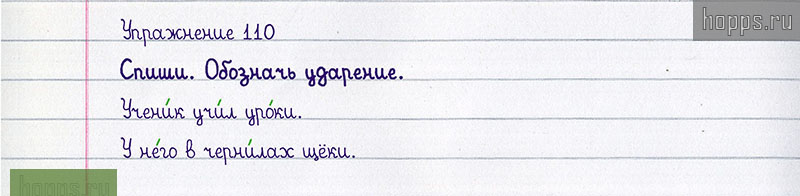 hopps.ru
Упражнение 110
Спиши. Обозначь ударение.
Учени́к учи́л уро́ки.
У не́го в черни́лах щёки.
hopps.ru